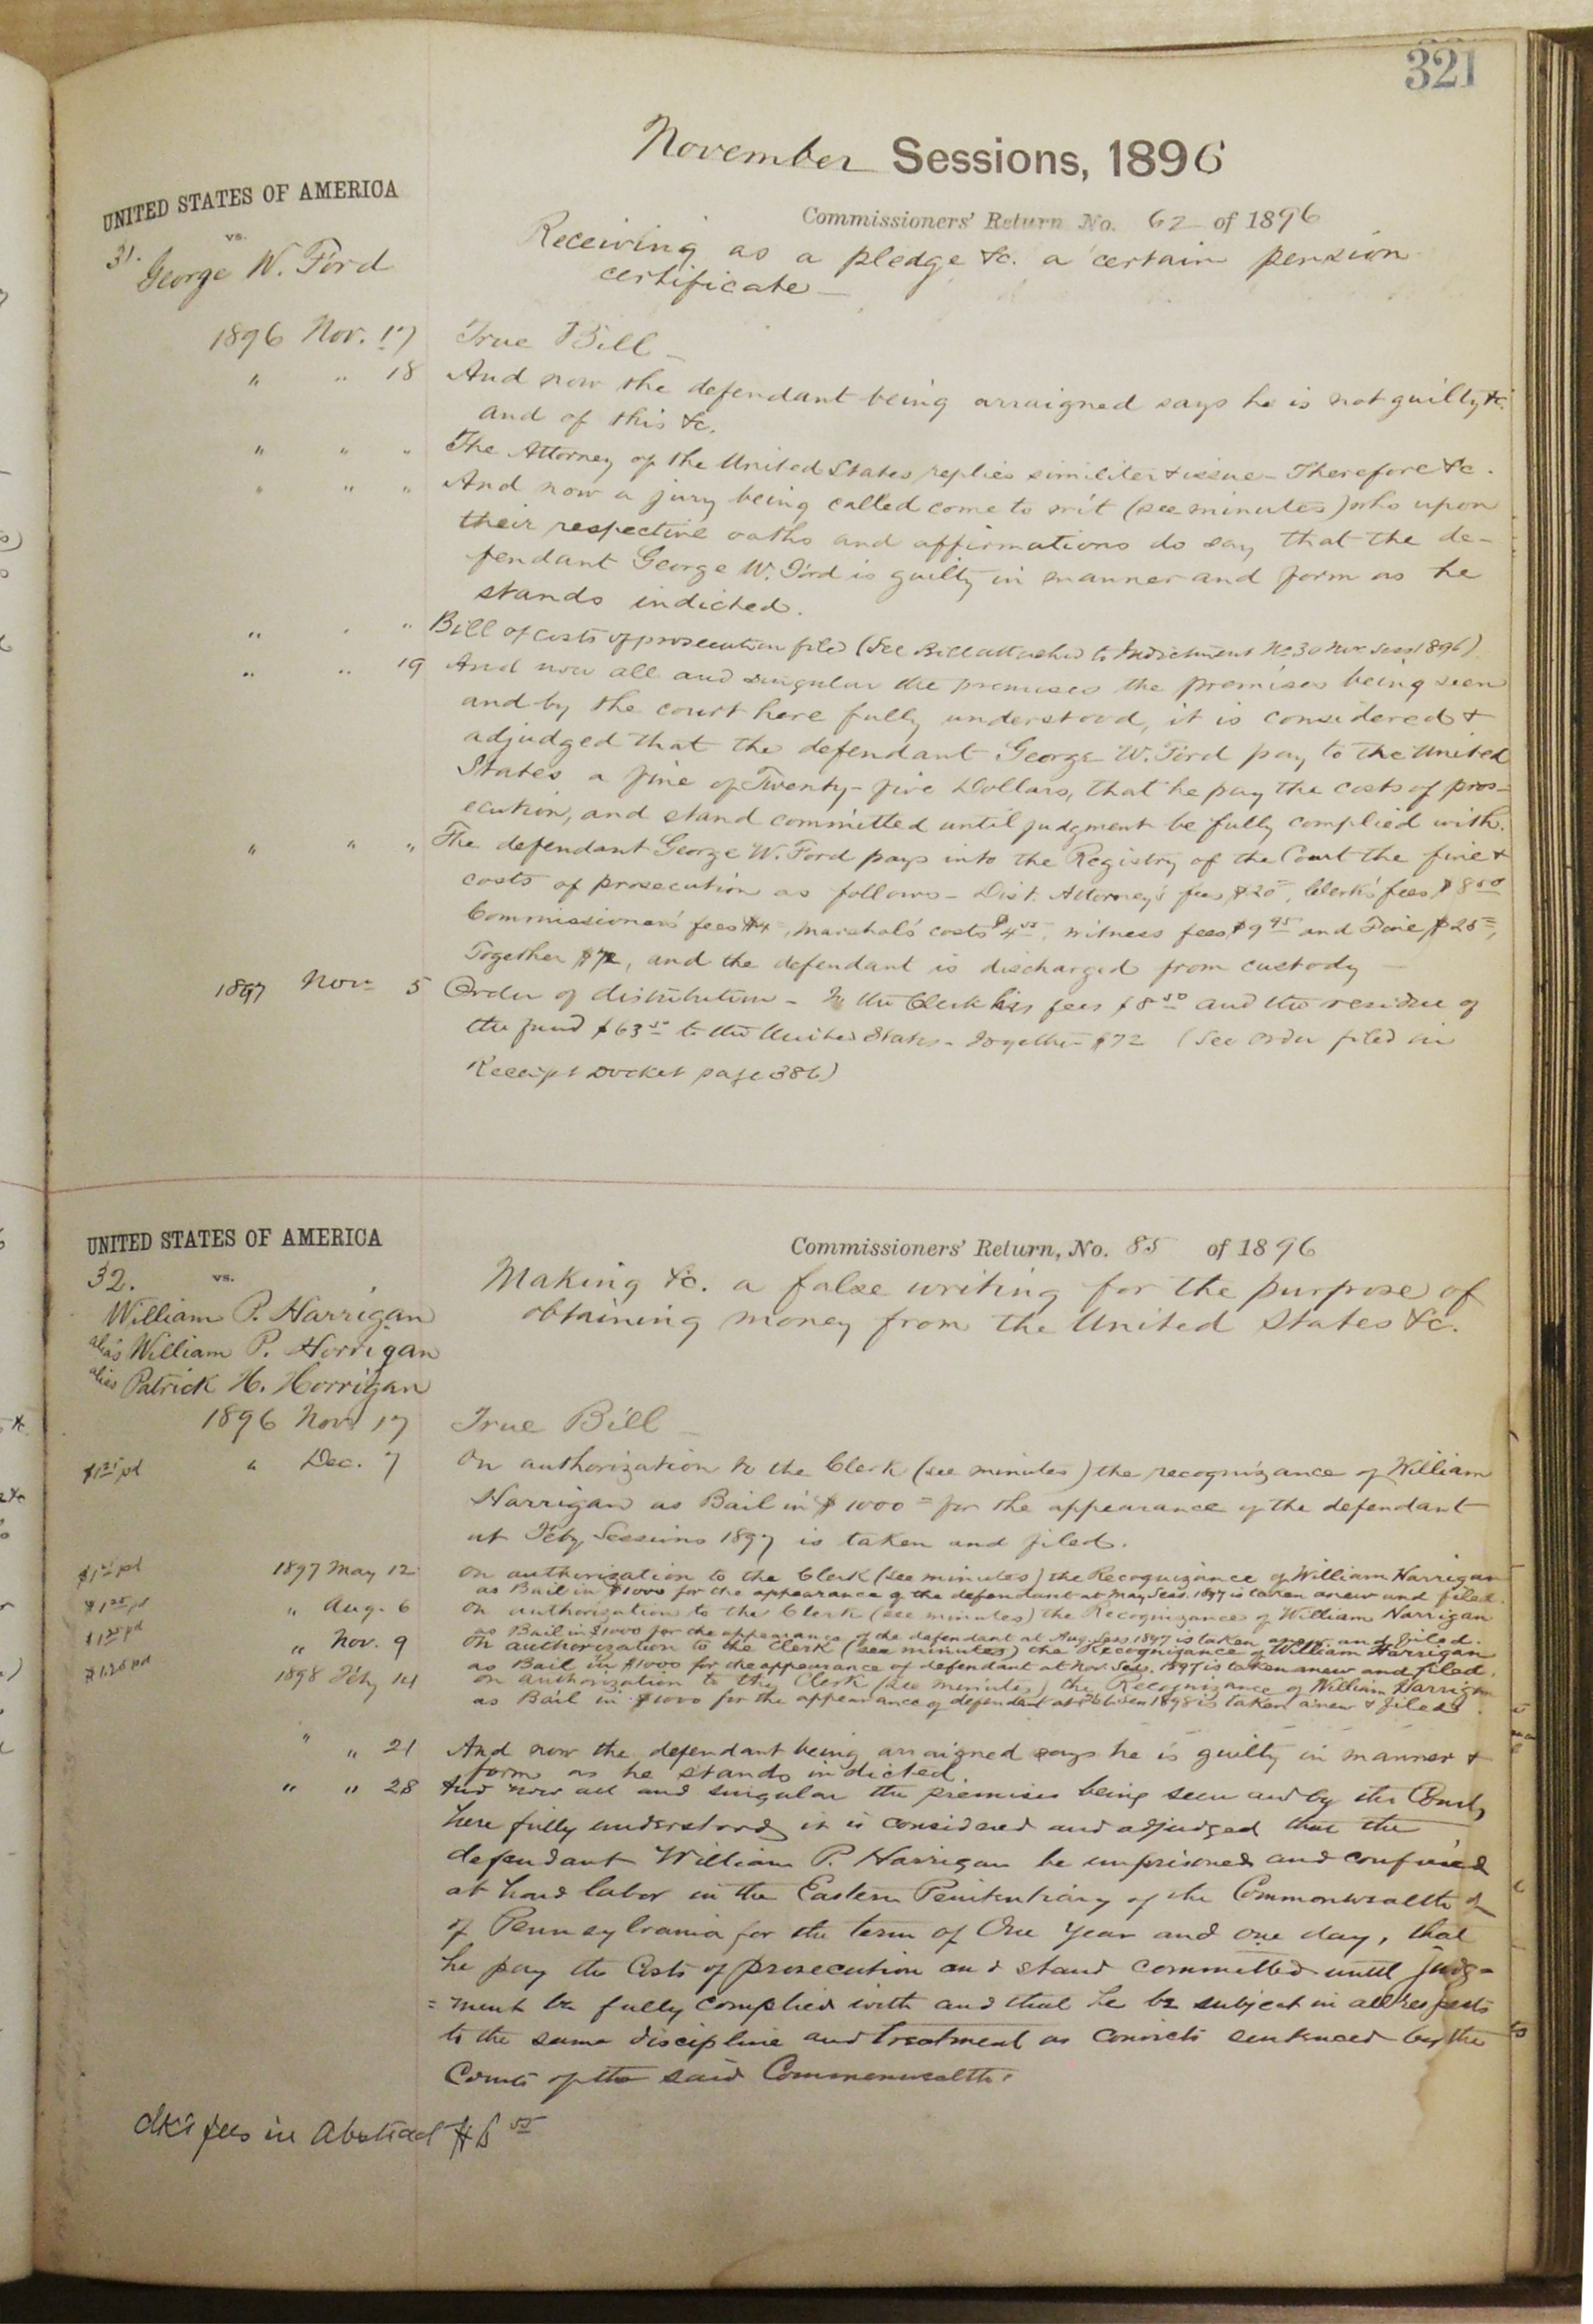 321
November Sessions, 1896
UNITED STATES OF AMERICA
vs.
31.
George W. Ford
Commissioners' Return No. 62 of 1896
Receiving as a pledge &c. a certain pension
certificate
1896 Nov. 17 True Bill
" " 18 And now the defendant being arraigned says he is not guilty &c.
and of this &c.
" " " The Attorney of the United States replies similiter & issue - Therefore &c.
" " " And now a jury being called come to wit (see minutes) who upon
their respective oaths and affirmations do say that the de-
fendant George W. Ford is guilty in manner and form as he
stands indicted.
" " " Bill of costs of prosecution filed (See Bill attached to Indictment No 30 Nov Sess 1896)
" " 19 And now all and singular the premises the premises being seen
and by the court here fully understood, it is considered &
adjudged that the defendant George W. Ford pay to the United
States a fine of Twenty-five Dollars, that he pay the costs of pros-
ecution, and stand committed until judgment be fully complied with.
" " " The defendant George W. Ford pays into the Registry of the Court the fine &
costs of prosecution as follows - Dist. Attorney's fees $20=, Clerk's fees $8 50
Commissioner's fees $4=, Marshal's costs $4 55, witness fees $9 95 and Fine $25=,
Together $72, and the defendant is discharged from custody
1897 Nov 5 Order of distribution - To the Clerk his fees $8 50 and the residue of
the fund $63 50 to the United States - Together $72 (See order filed in
Receipt Docket page 386)
UNITED STATES OF AMERICA
32. vs.
William P. Harrigan
alias William P. Horrigan
alias Patrick H. Horrigan
Commissioners' Return, No. 85 of 1896
Making &c. a false writing for the purpose of
obtaining money from the United States &c.
1896 Nov 17 True Bill
$1 25 pd " Dec. 7 On authorization to the Clerk (see minutes) the recognizance of William
Harrigan as Bail in $1000= for the appearance of the defendant
at Feby Sessions 1897 is taken and filed.
$1 25 pd 1897 May 12 On authorization to the Clerk (see minutes) the Recognizance of William Harrigan
as Bail in $1000 for the appearance of the defendant at May Sess. 1897 is taken anew and filed.
$1 25 pd " Aug. 6 On authorization to the Clerk (see minutes) the Recognizance of William Harrigan
as Bail in $1000 for the appearance of the defendant at Aug. Sess. 1897 is taken anew and filed.
$1 25 pd " Nov. 9 On authorization to the Clerk (see minutes) the Recognizance of William Harrigan
as Bail in $1000 for the appearance of defendant at Nov. Sess. 1897 is taken anew and filed.
$1.25 pd 1898 Feby 14 On authorization to the Clerk (see minutes) the Recognizance of William Harrigan
as Bail in $1000 for the appearance of defendant at Feb Sess 1898 is taken anew & filed.
" " 21 And now the defendant being arraigned says he is guilty in manner &
form as he stands indicted.
" " 28 And now all and singular the premises being seen and by the Court,
here fully understood, it is considered and adjudged that the
defendant William P. Harrigan be imprisoned and confined
at hard labor in the Eastern Penitentiary of the Commonwealth of
of Pennsylvania for the term of One Year and one day, that
he pay the Costs of prosecution and stand committed until judg-
=ment be fully complied with and that he be subject in all respects
to the same discipline and treatment as convicts sentenced by the
Courts of the said Commonwealth.
Clk's fees in Abstract